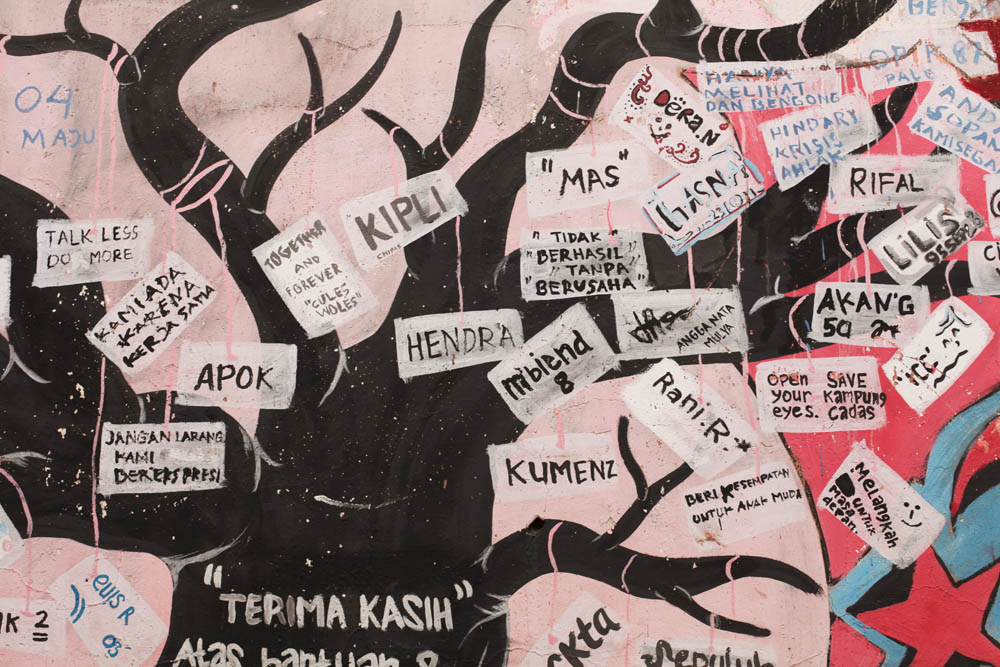 04
MAJU
TALK LESS
DO MORE
KAMI ADA
KARENA
KERJA SAMA
APOK
JANGAN LARANG
KAMI
BEREKSPRESI
TOGETHER
AND
FOREVER
"CULES
WOLES"
"KIPLI
HENDRA
"MAS"
" TIDAK
"BERHASIL
"TANPA
"BERUSAHA
mblend
8
KUMENZ
ANGGANATA
MULYA
Rani.R
BERI KESEMPATAN
UNTUK ANAK MUDA
HANYA
MELIHAT
DAN BENGONG
HINDARY
KRISIS
AHLAK
OPIK 87
PALU
AND
SOPAN
KAMISEGA
RIFAL
LILIS
AKANG
50
Open SAVE
your kampung
eyes. Cadas
Melangkah
UNTUK
Masa
depan.
"TERIMA KASIH"
Atas bantuan
euis R
03
2